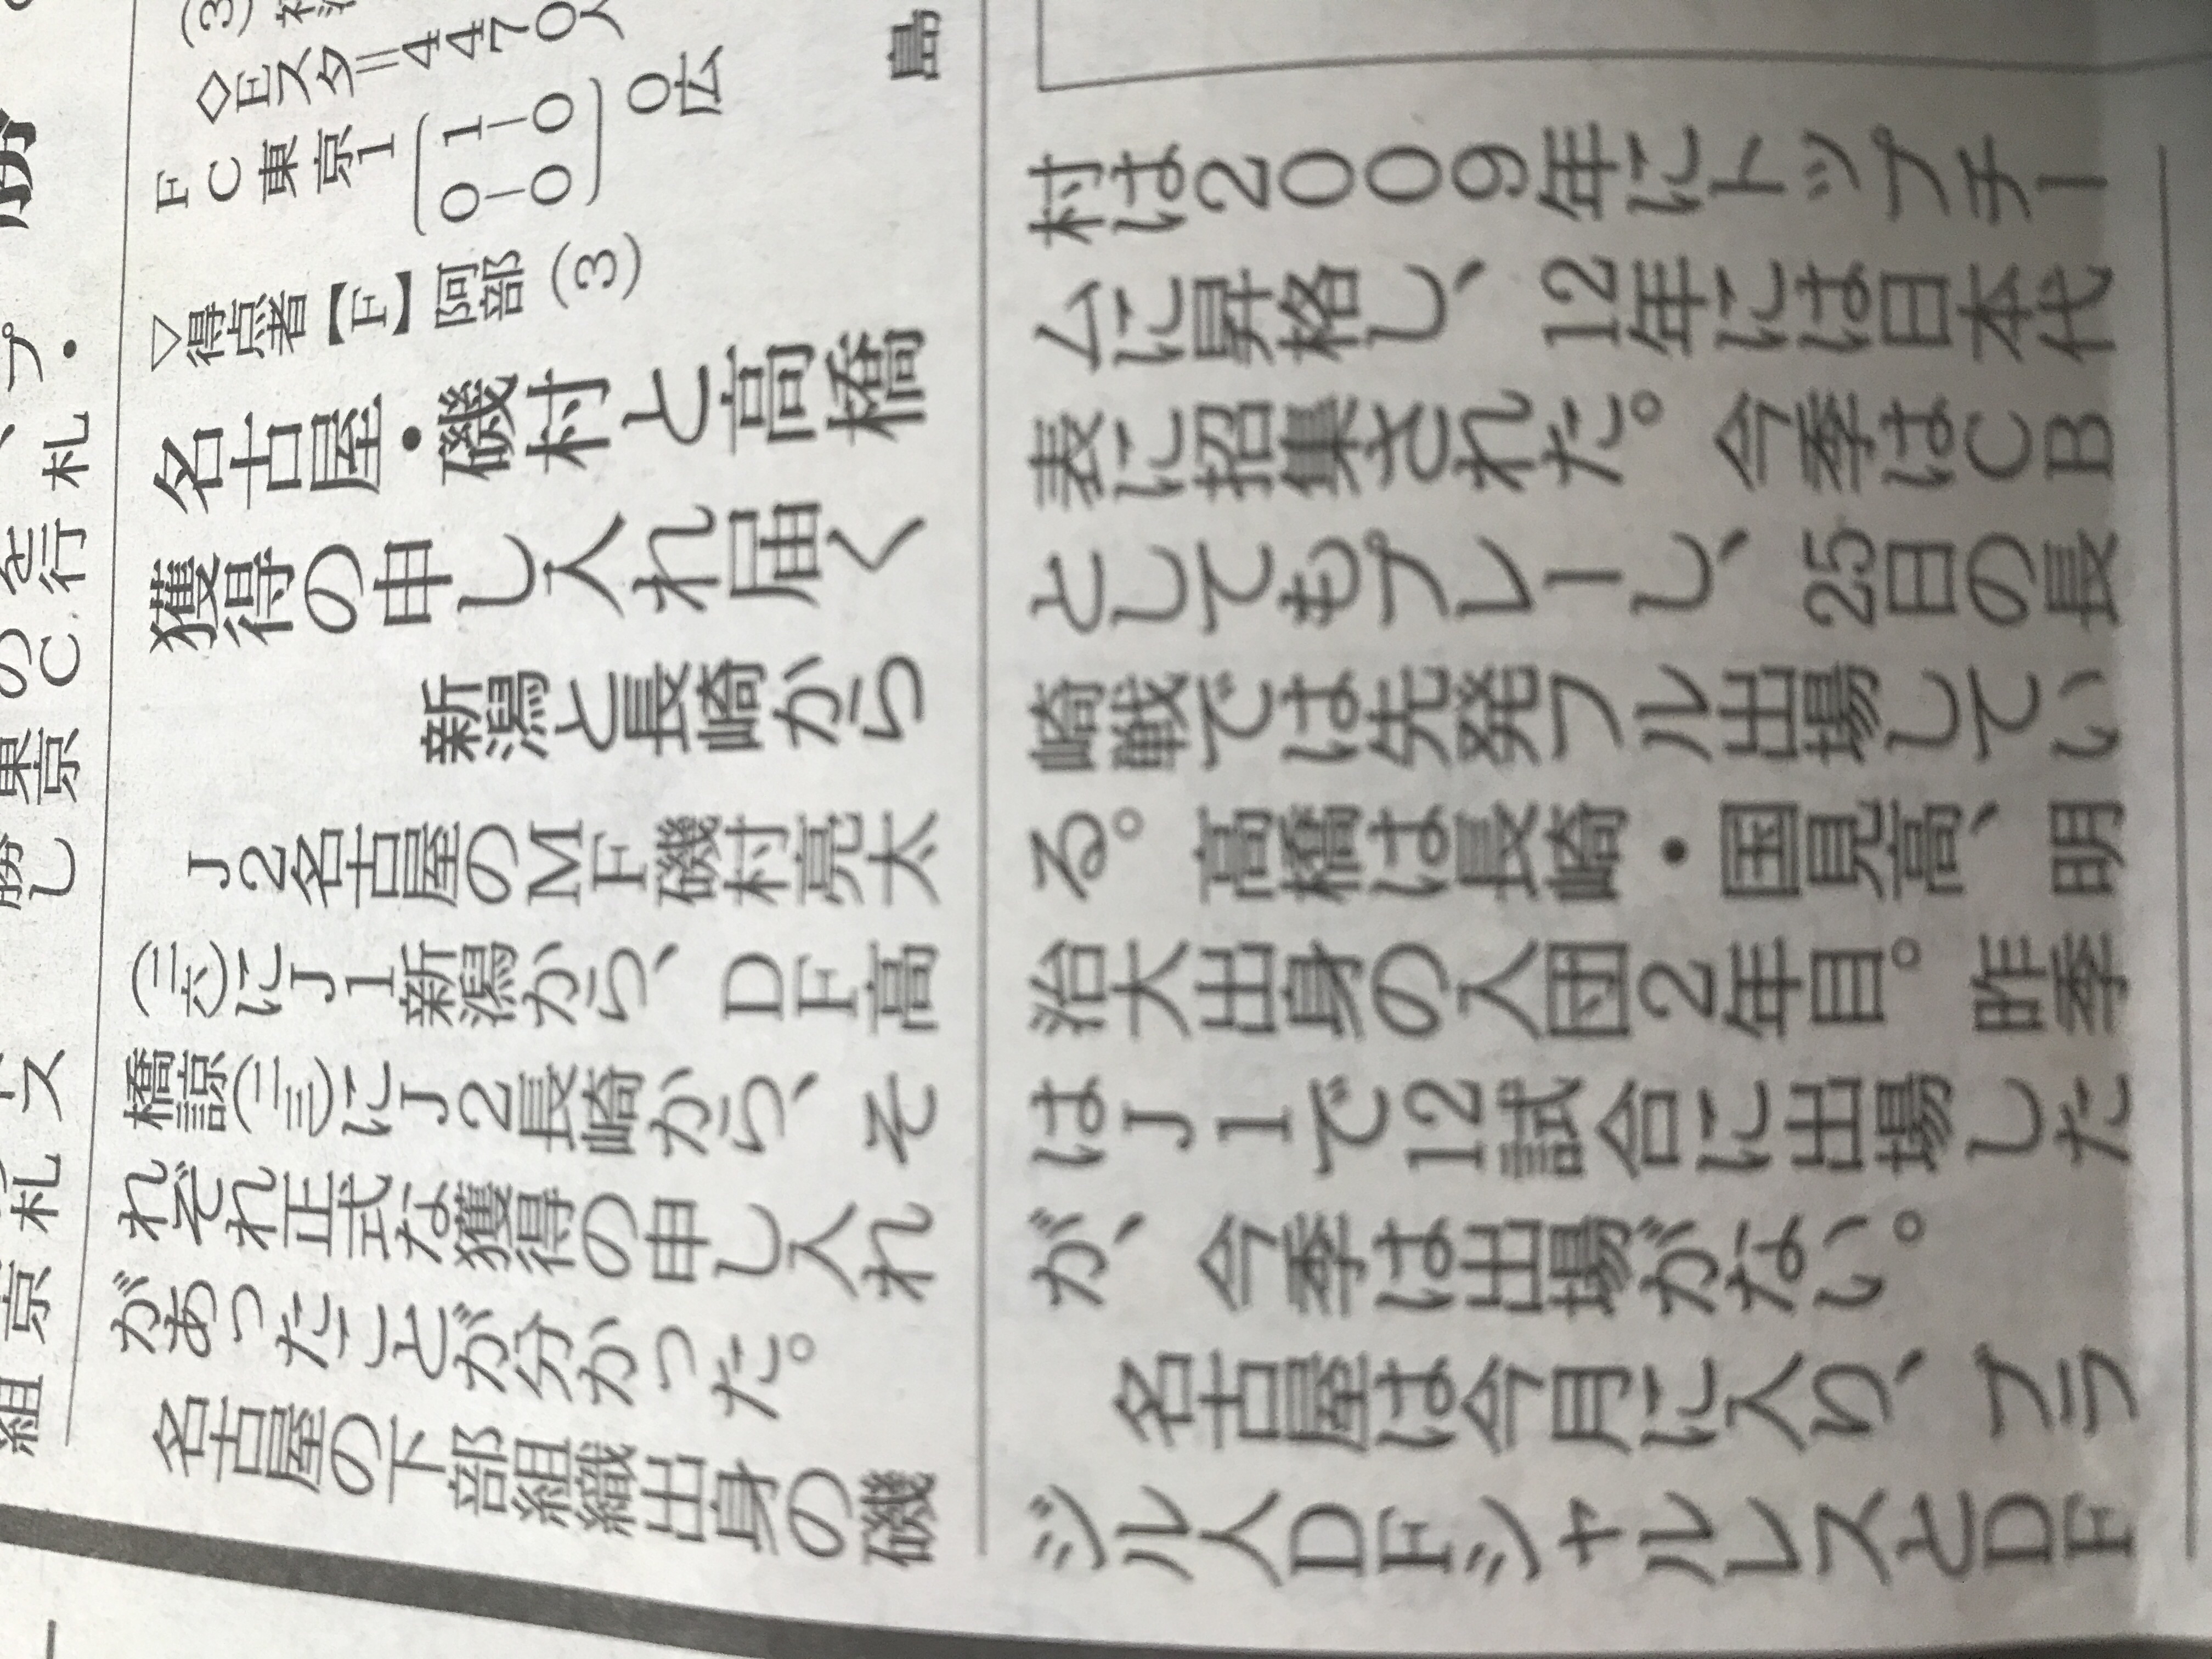 ◇Eスタ=4470人
FC東京1(1-0 0-0)0広島
▽得点者【F】阿部(3)
名古屋・磯村と高橋
獲得の申し入れ届く
新潟と長崎から
J2名古屋のMF磯村亮太
(二六)にJ1新潟から、DF高
橋諒(二三)にJ2長崎から、そ
れぞれ正式な獲得の申し入れ
があったことが分かった。
名古屋の下部組織出身の磯
村は2009年にトップチー
ムに昇格し、12年には日本代
表に招集された。今季はCB
としてもプレーし、25日の長
崎戦では先発フル出場してい
る。高橋は長崎・国見高、明
治大出身の入団2年目。昨季
はJ1で12試合に出場した
が、今季は出場がない。
名古屋は今月に入り、ブラ
ジル人DFシャルレスとDF